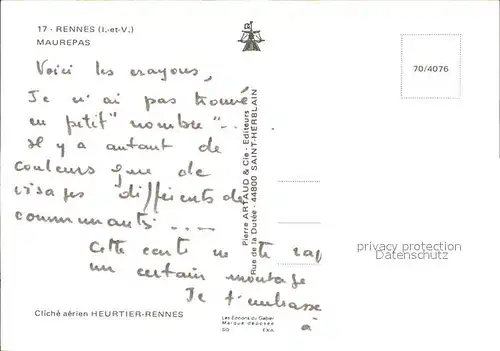 17 - RENNES (I.-et-V.)
MAUREPAS
70/4076
Voici les crayons,
Je n'ai pas trouvé
en petit "nombre"...
Il y a autant de
couleurs que de
visages différents de
communants....
Cette carte ne te rap
un certain montage
Je t'embrasse
à
Pierre ARTAUD & Cie - Editeurs
Rue de la Dutée - 44800 SAINT-HERBLAIN
privacy protection
Datenschutz
Cliché aérien HEURTIER-RENNES
Les Editions du Gabier
Marque déposée